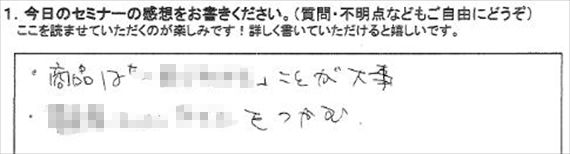 1. 今日のセミナーの感想をお書きください。（質問・不明点などもご自由にどうぞ）
ここを読ませていただくのが楽しみです！詳しく書いていただけると嬉しいです。
・商品は「 」ことが大事
・ をつかむ